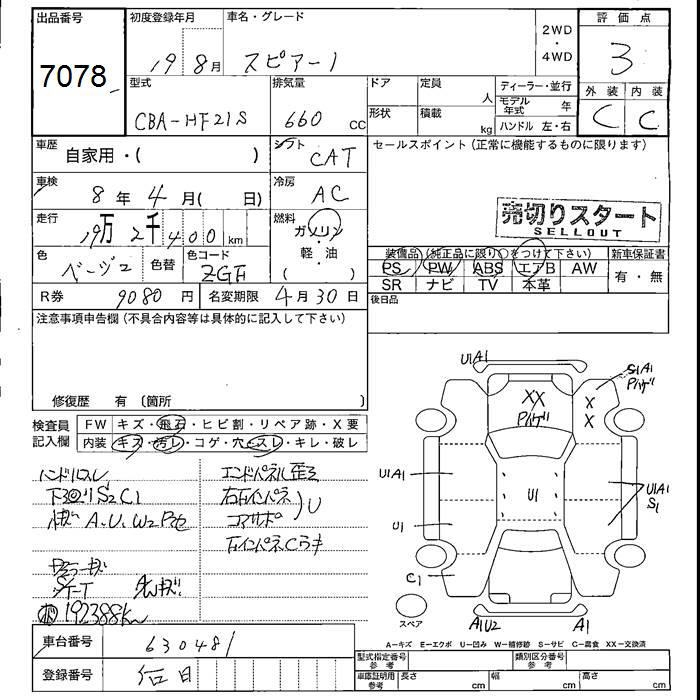 出品番号 初度登録年月 車名・グレード 2WD ・ 4WD 評価点
7078 19 8月 スピアーノ 3
型式 排気量 ドア 定員 人 ディーラー・並行 外装 内装
CBA-HF21S 660 cc 形状 積載 kg モデル年式 年 C C
ハンドル 左・右
車歴 自家用・( ) シフト CAT セールスポイント(正常に機能するものに限ります)
車検 8年 4月( 日) 冷房 AC
売切りスタート
SELLOUT
走行 19万2千400 km 燃料 ガソリン・軽・油
色 ベージュ 色替 色コード ZGF 装備品(純正品に限り○をつけて下さい) 新車保証書
PS PW ABS エアB AW 有・無
SR ナビ TV 本革
R券 9080円 名変期限 4月30日 後日品
注意事項申告欄(不具合内容等は具体的に記入して下さい)
修復歴 有 (箇所
検査員記入欄 FW キズ・飛石・ヒビ割・リペア跡・X要
内装 キズ・汚レ・コゲ・穴・スレ・キレ・破レ
ハンドルスレ エンドパネル歪ミ
下回りS2C1 右インパネ
コアサポ U
A.U.W2
右インパネCうキ
192388km
U1A1
S1A1
Pハゲ
XX
Pハゲ
X
X
U1A1
U1
U1A1
S1
U1
C1
スペア
A1U2 A1
A=キズ E=エクボ U=凹み W=補修跡 S=サビ C=腐食 XX=交換済
車台番号 630481 型式指定番号 参考 類別区分番号 参考
登録番号 車庫証明用 参考 長さ cm 幅 cm 高さ cm